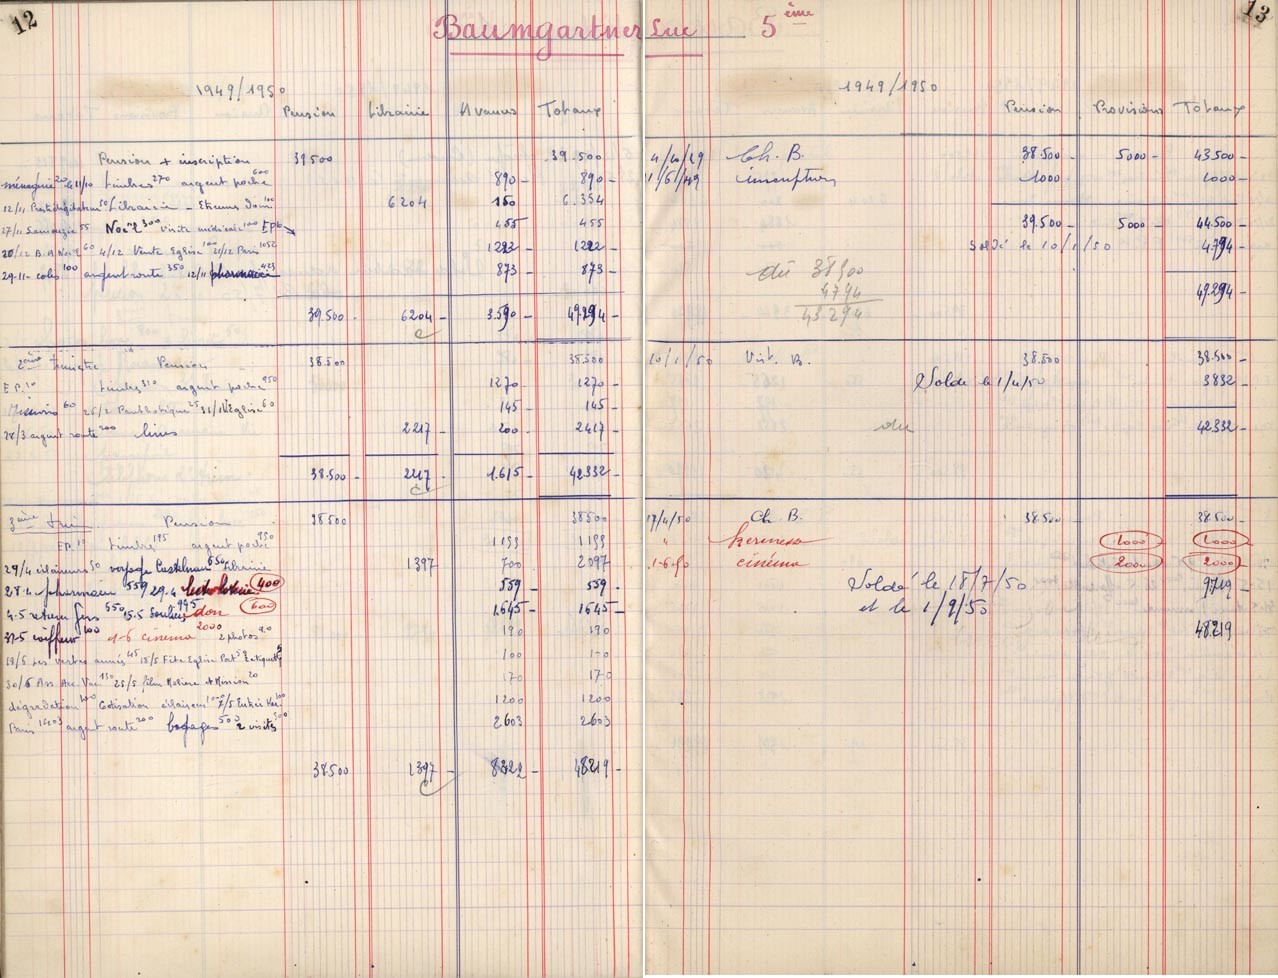 12
Baumgartner Luc 5ème
13
1949/1950
Pension Librairie Avances Totaux
Pension + inscription 39500 39.500
ménagerie 20 le 11/10 timbres 270 argent poche 600 890 - 890 -
12/11 Prestidigitateur 50 Librairie - Etrennes dom 100 6204 150 6.354
27/11 55 Noël 300 visite médicale 100 455 455
20/12 B.A. Noël 60 4/12 Vente Eglise 100 21/12 Paris 1052 1222 - 1222 -
29-11- colis 100 argent route 350 12/11 pharmacie 423 873 - 873 -
39.500 - 6204 - 3590 - 49.294 -
2ème trimestre Pension - 38.500 38.500
E.P. 10 timbres 310 argent poche 950 1270 - 1270 -
Missions 60 25/2 25 Eglise 60 145 - 145 -
28/3 argent route 200 livres 2217 - 200 - 2417 -
38.500 - 2217 - 1.615 - 42332 -
3ème trim Pension 38500 38500
E.P. 10 timbres 195 argent poche 950 1155 1155
29/4 éclaireurs 50 voyage Castelnau 650 Librairie 1397 700 2097
28.4 pharmacie 559 29.4 400 559 - 559 -
4.5 retour Gers 550 15.5 Souliers 995 don 600 1645 - 1645 -
31-5 coiffeur 100 1-6 cinéma 2000 2 photos 90 190 190
19/5 Les vertes années 45 18/5 Fête Eglise Prot 50 Etiquette 5 100 100
30/6 Ass. Acc. Vac 150 25/5 film Molière et Mission 20 170 170
dégradation 100 Cotisation éclaireurs 1000 7/5 Entrée 100 1200 1200
Paris 1403 argent route 200 bagages 500 2 visites 500 2603 2603
38.500 1397 - 8322 - 48219 -
1949/1950
Pension Provisions Totaux
Ch. B. 38.500 - 5000 - 43.500 -
inscription 1000 1000 -
39.500 - 5000 - 44.500 -
Soldé le 10/1/50 4.794 -
49.294 -
dû 38500
4794
43294
10/1/50 Virt. B. 38.500 38.500 -
Soldé le 1/4/50 3832 -
du 42.332 -
17/4/50 Ch B. 38.500 - 38.500 -
" kermesse 1000 1000 -
1-6-50 cinéma 2000 2000 -
Soldé le 18/7/50 9719 -
et le 1/9/50
48219